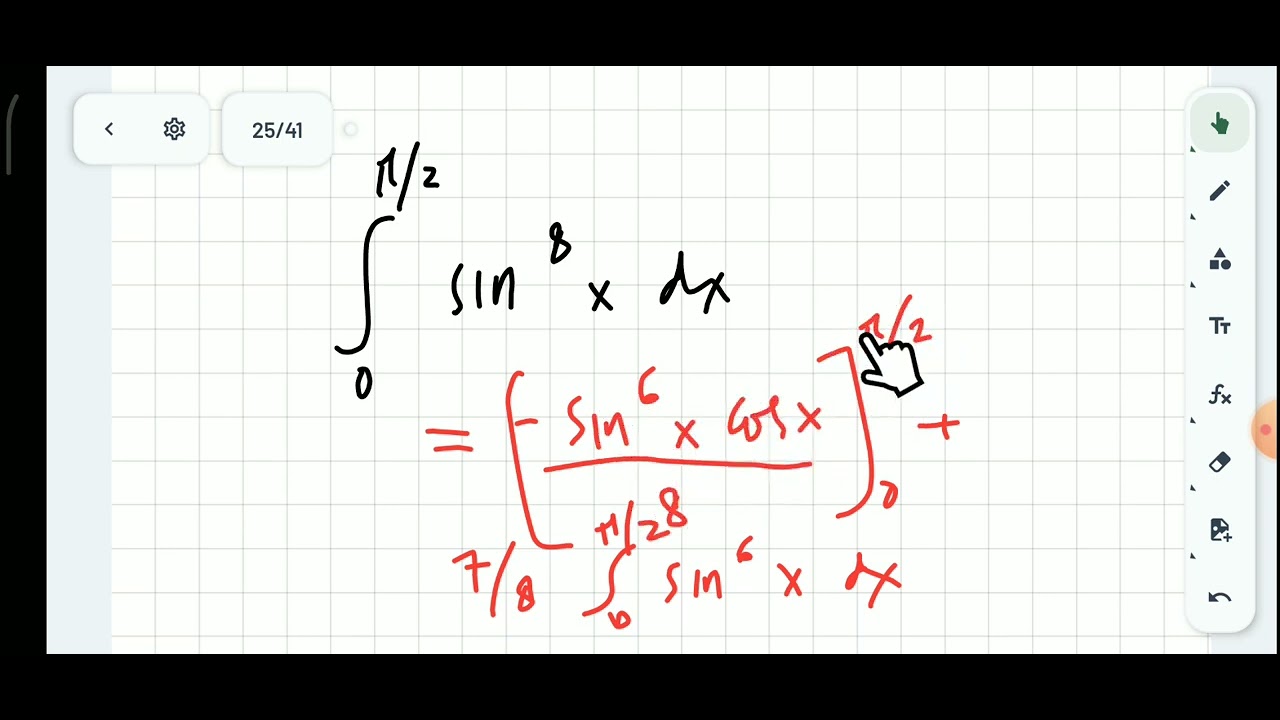 25/41
π/2
∫ sin⁸ x dx
0
= [- sin⁶ x cos x / 8]₀^π/2 +
7/8 ∫₀^π/2 sin⁶ x dx
Tт
fx